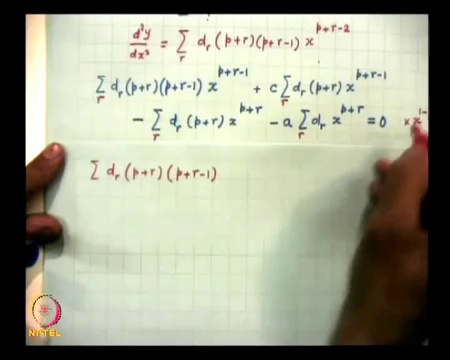 d²y/dx² = Σ_r d_r (p+r)(p+r-1) x^{p+r-2}
Σ_r d_r (p+r)(p+r-1) x^{p+r-1} + c Σ_r d_r (p+r) x^{p+r-1}
- Σ_r d_r (p+r) x^{p+r} - a Σ_r d_r x^{p+r} = 0 × x^{1-
Σ d_r (p+r) (p+r-1)
NPTEL